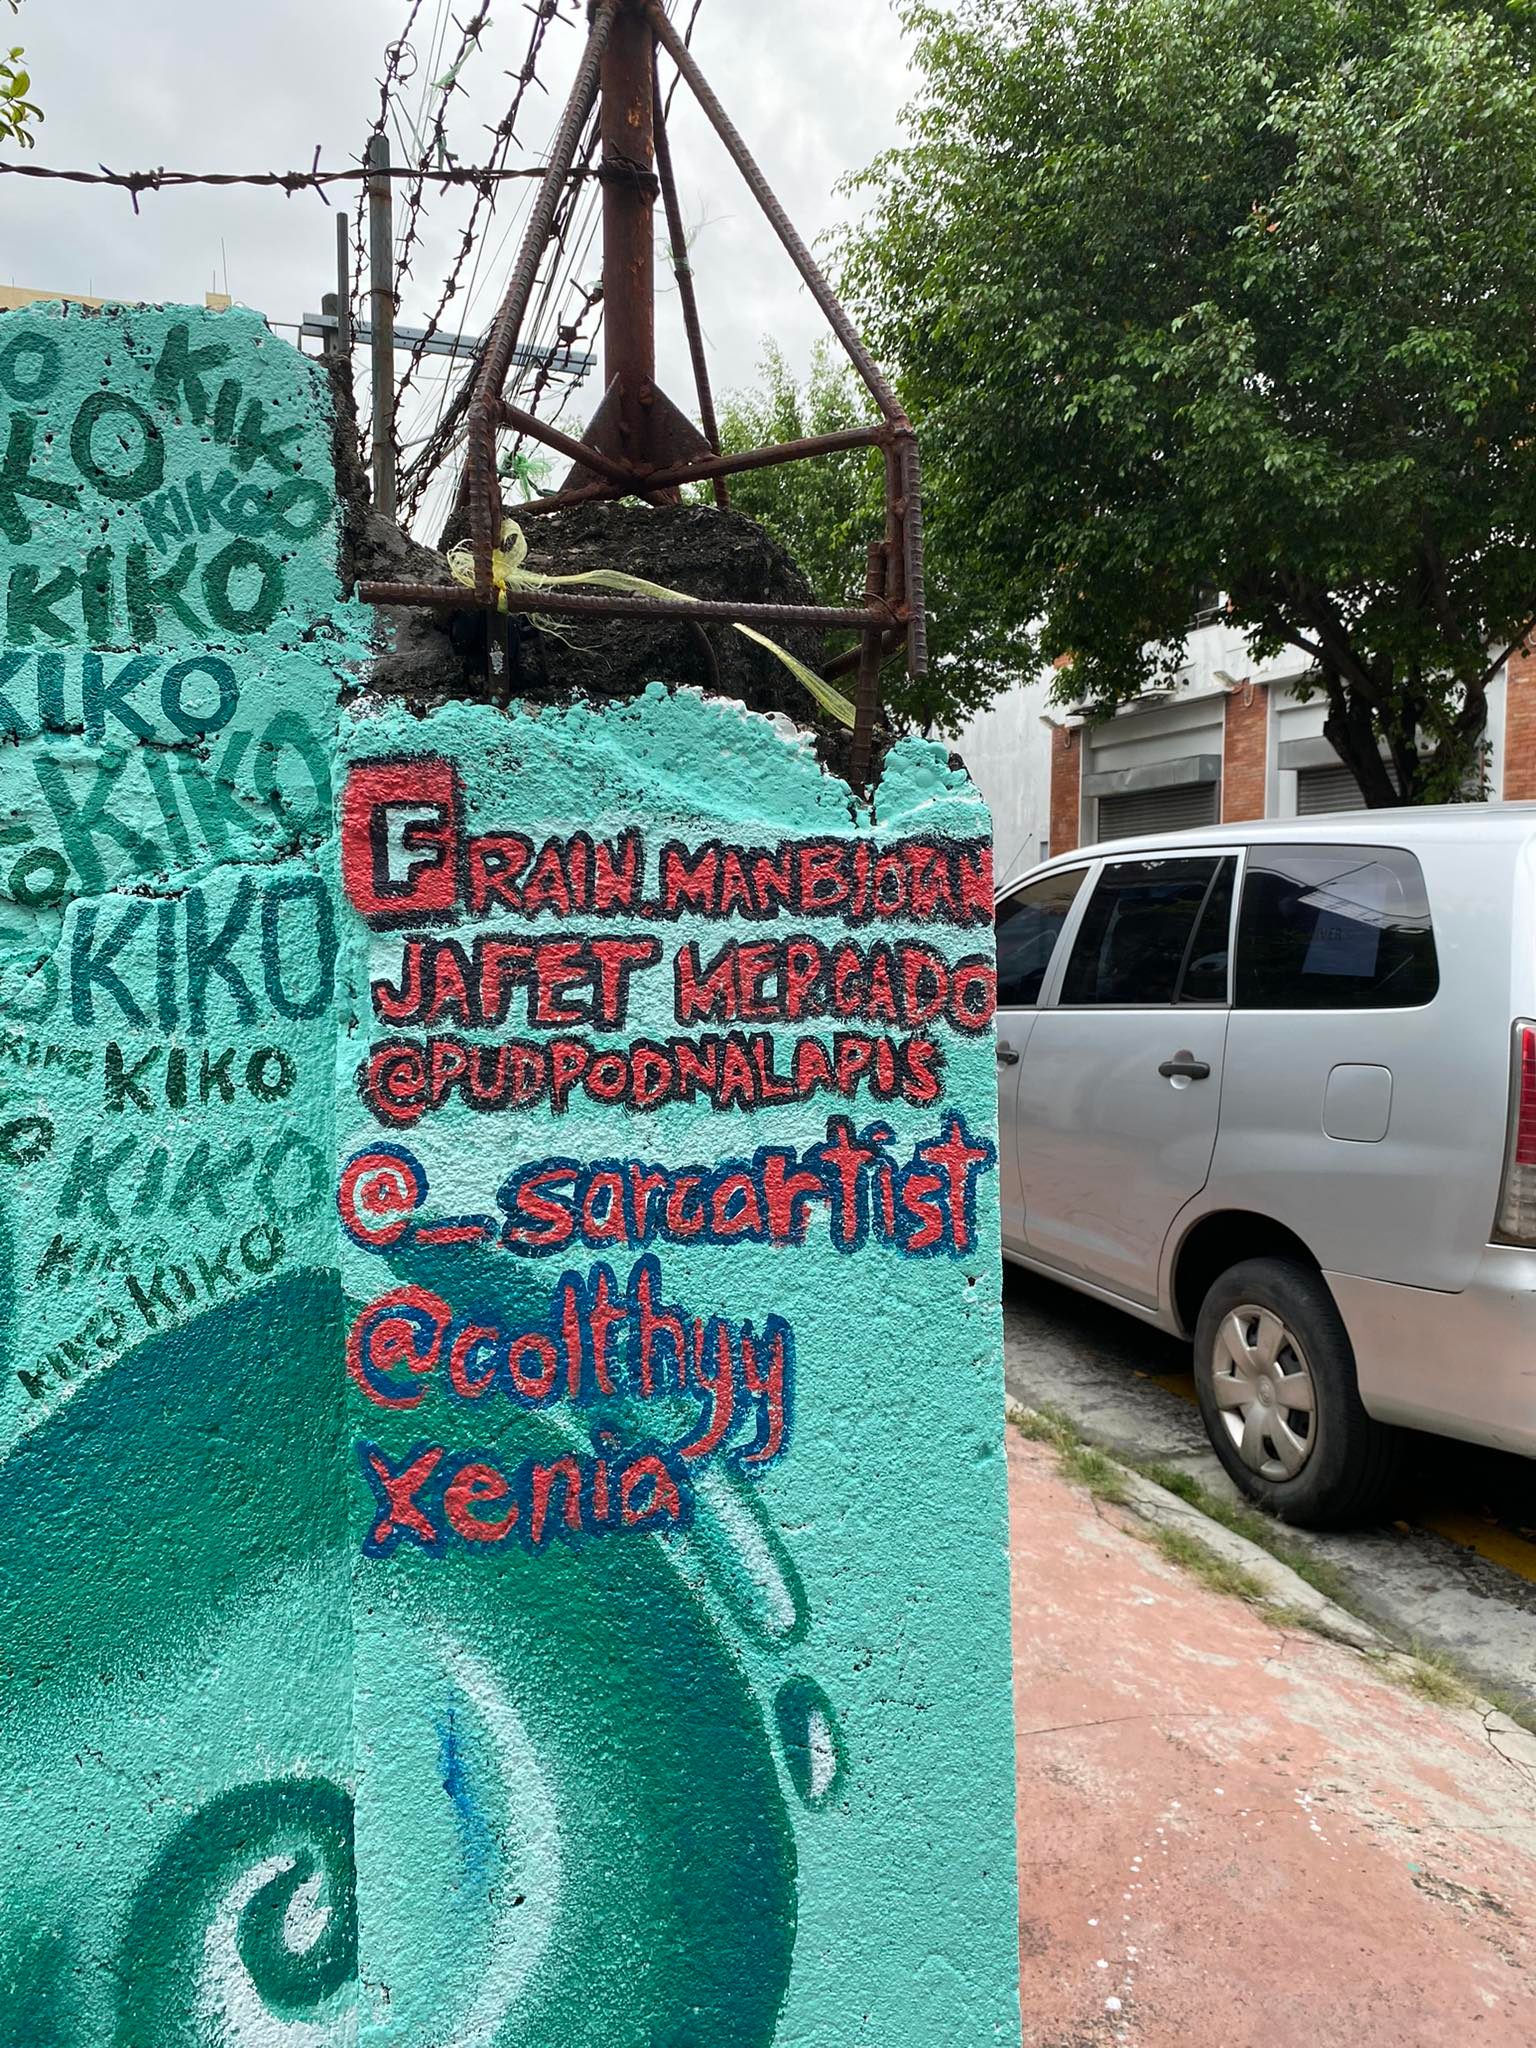 KIKO
KIKO
KIKO
KIKO
KIKO
KIKO
KIKO
KIKO
KIKO
KIKO
KIKO
FRAIN.MANBIOTAN
JAFET MERCADO
@PUDPODNALAPIS
@_sarcartist
@colthyy
xenia